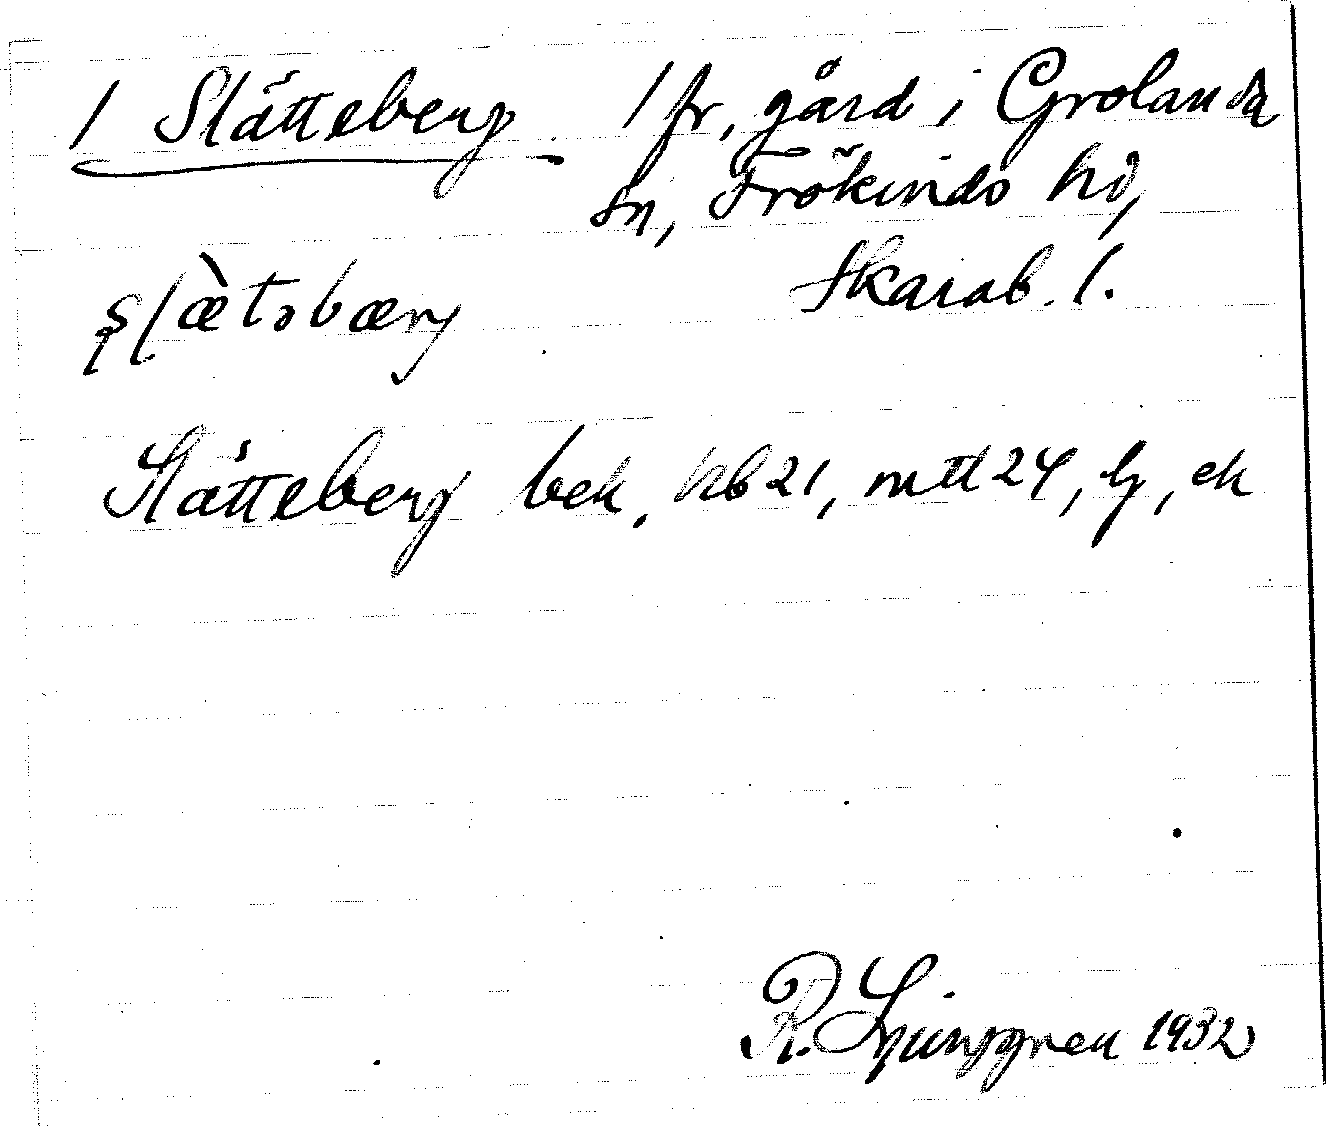 1 Slätteberg 1 fr, gård i Grolanda
sn, Frökinds hd,
Skarab. l.
ʂlæ̀təbærj
Slätteberg bek. kb 21, mtl 24, lj, ek
R. Ljunggren 1932